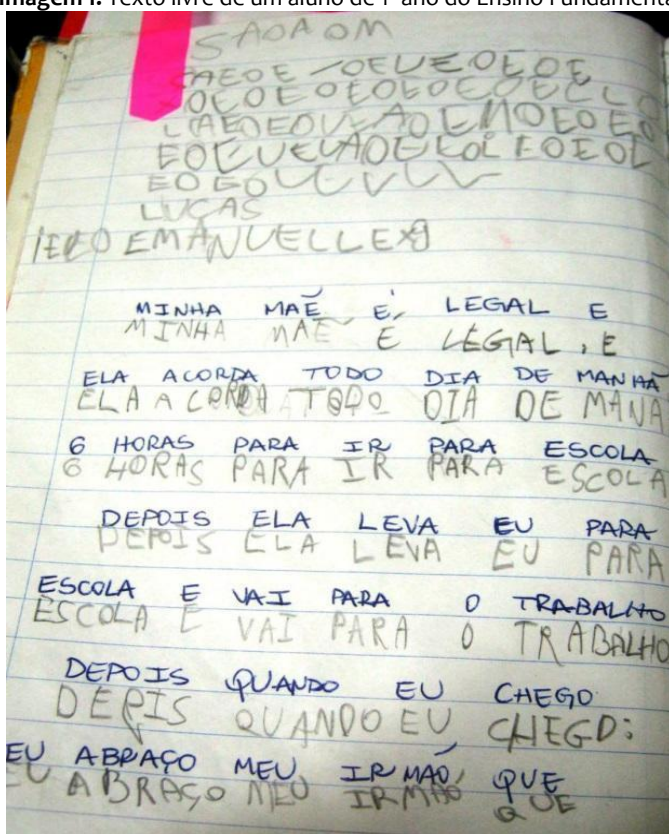 Imagem 1: Texto livre de um aluno de 1º ano do Ensino Fundamental
SAOAOM
LUCAS
EMANUELLE
MINHA MAẼ É, LEGAL E
MINHA MAẼ E LEGAL, E
ELA ACORDA TODO DIA DE MANHÃ
ELA ACORDA TODO DIA DE MANA
6 HORAS PARA IR PARA ESCOLA
6 HORAS PARA IR PARA ESCOLA
DEPOIS ELA LEVA EU PARA
DEPOIS ELA LEVA EU PARA
ESCOLA E VAI PARA O TRABALHO
ESCOLA E VAI PARA O TRABALHO
DEPOIS QUANDO EU CHEGO
DEPIS QUANDO EU CHEGO:
EU ABRAÇO MEU IRMÃO, QUE
EU ABRAÇO MEU IRMÃO QUE